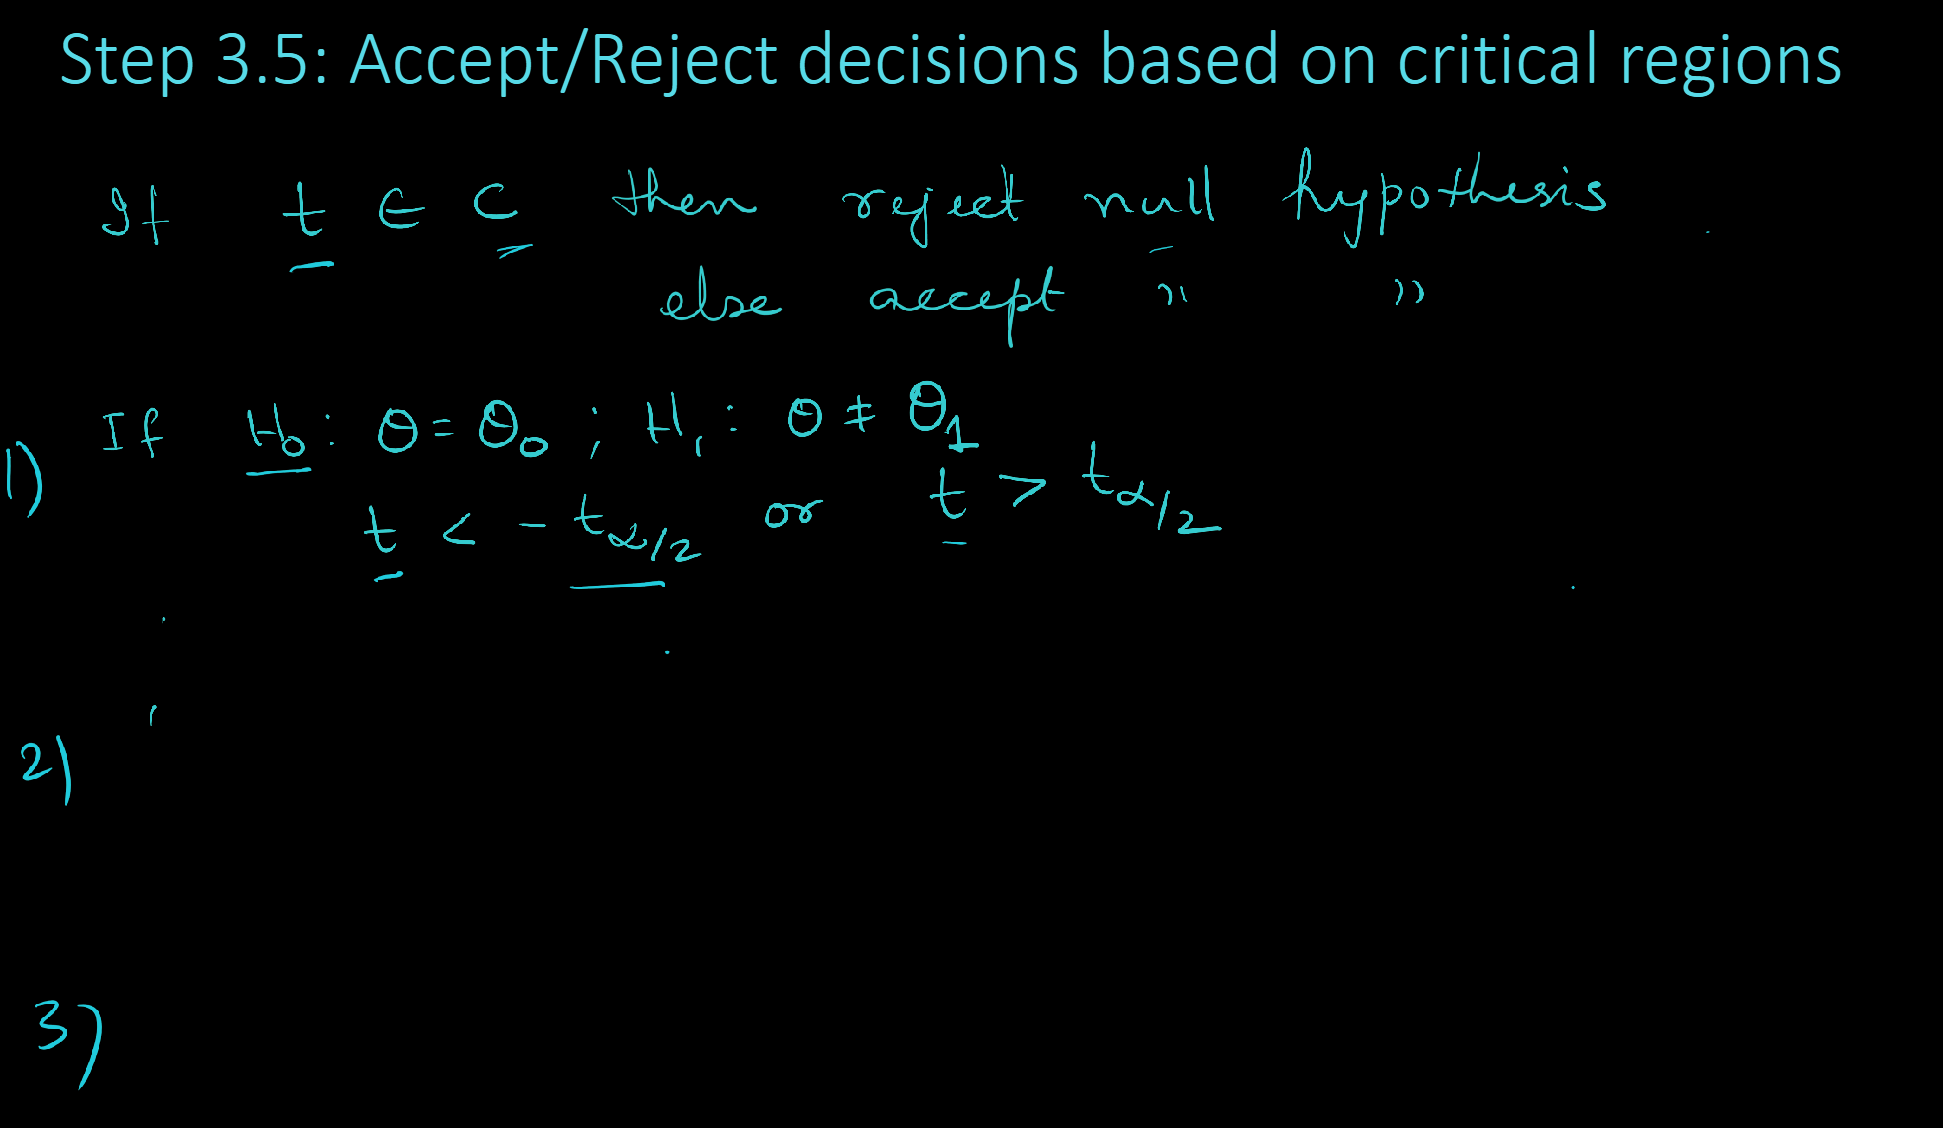 Step 3.5: Accept/Reject decisions based on critical regions
If t ∈ C then reject null hypothesis
else accept " "
1) If H₀: θ = θ₀ ; H₁: θ ≠ θ₁
t < - t_α/2 or t > t_α/2
2)
3)